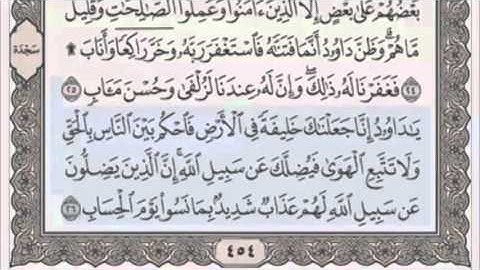 بَعۡضُهُمۡ عَلَىٰ بَعۡضٍ إِلَّا ٱلَّذِينَ ءَامَنُواْ وَعَمِلُواْ ٱلصَّٰلِحَٰتِ وَقَلِيلٞ
مَّا هُمۡۗ وَظَنَّ دَاوُۥدُ أَنَّمَا فَتَنَّٰهُ فَٱسۡتَغۡفَرَ رَبَّهُۥ وَخَرَّۤ رَاكِعٗاۤ وَأَنَابَ ۩
سجدة
٢٤ فَغَفَرۡنَا لَهُۥ ذَٰلِكَۖ وَإِنَّ لَهُۥ عِندَنَا لَزُلۡفَىٰ وَحُسۡنَ مَـَٔابٖ ٢٥
يَٰدَاوُۥدُ إِنَّا جَعَلۡنَٰكَ خَلِيفَةٗ فِي ٱلۡأَرۡضِ فَٱحۡكُم بَيۡنَ ٱلنَّاسِ بِٱلۡحَقِّ
وَلَا تَتَّبِعِ ٱلۡهَوَىٰ فَيُضِلَّكَ عَن سَبِيلِ ٱللَّهِۚ إِنَّ ٱلَّذِينَ يَضِلُّونَ
عَن سَبِيلِ ٱللَّهِ لَهُمۡ عَذَابٞ شَدِيدُۢ بِمَا نَسُواْ يَوۡمَ ٱلۡحِسَابِ ٢٦
٤٥٤